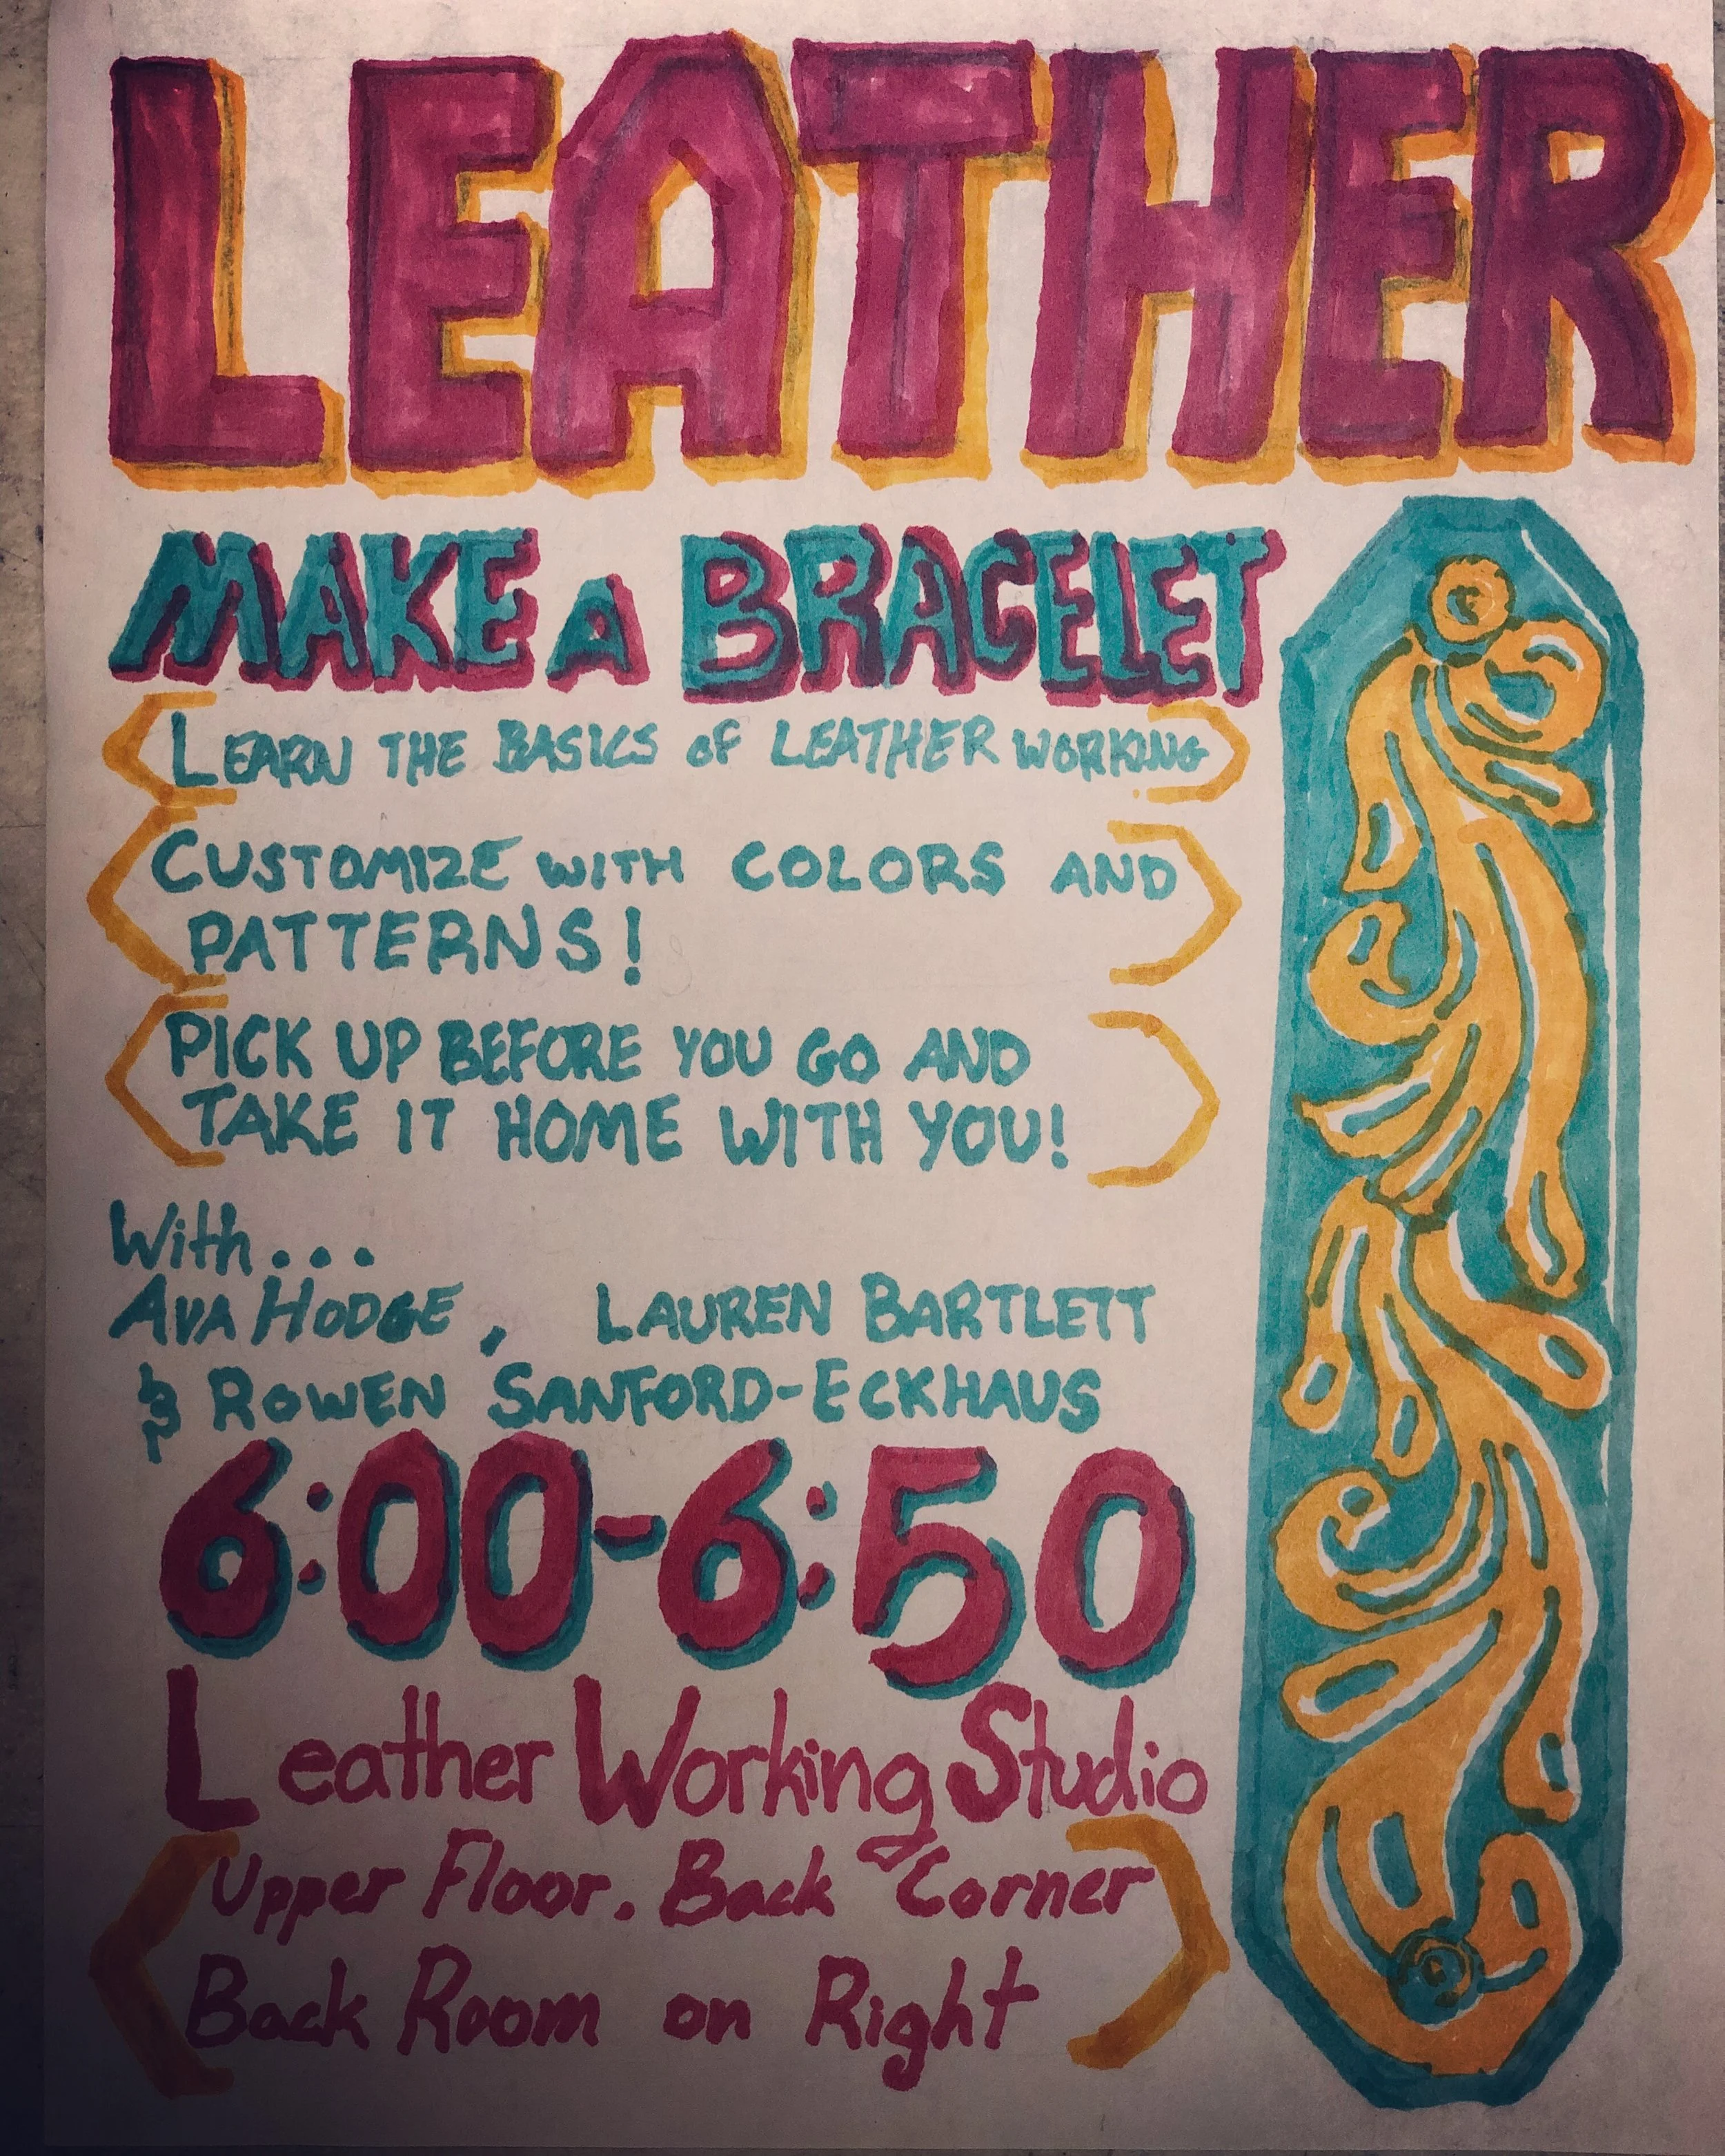 LEATHER
MAKE A BRACELET
LEARN THE BASICS OF LEATHER WORKING
CUSTOMIZE WITH COLORS AND
PATTERNS!
PICK UP BEFORE YOU GO AND
TAKE IT HOME WITH YOU!
With...
AVA HODGE, LAUREN BARTLETT
& ROWEN SANFORD-ECKHAUS
6:00-6:50
Leather Working Studio
Upper Floor. Back Corner
Back Room on Right